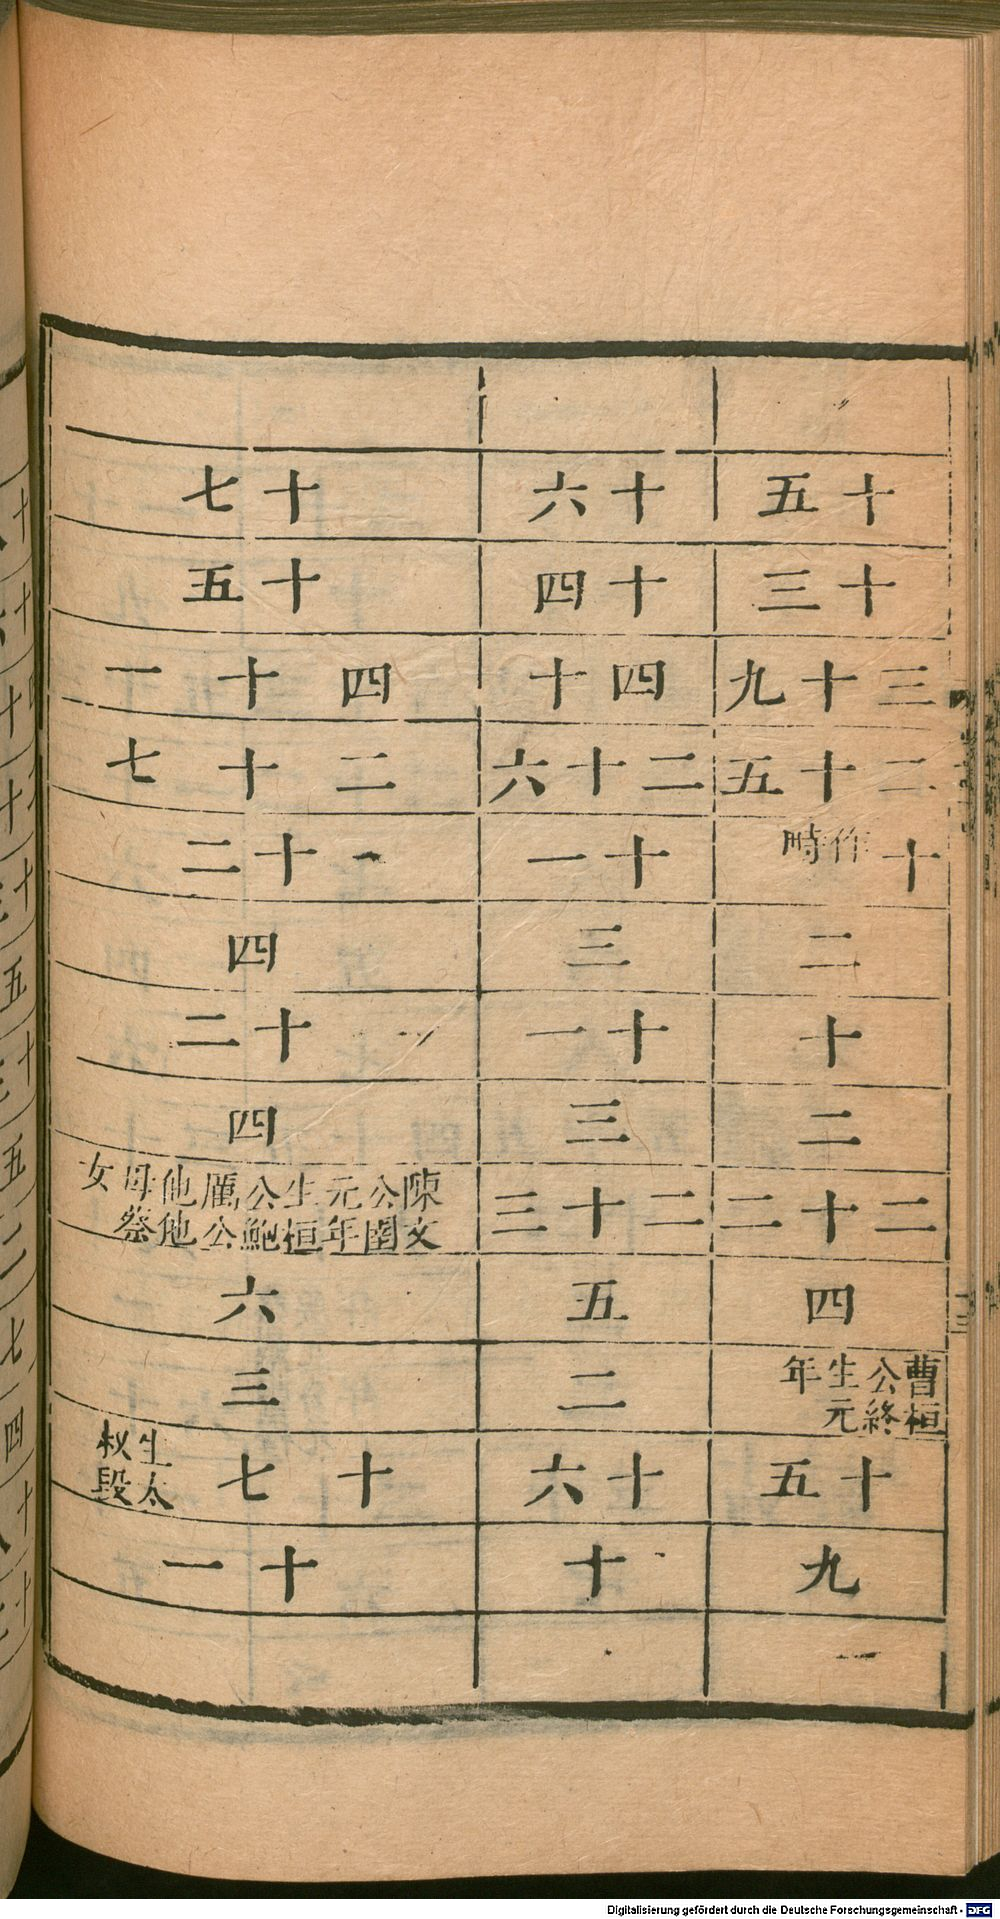 十五
十三
三十九
二十五
十作畤
二
十
二
二十二
四
曹桓公終生元年
十五
九
十六
十四
四十
二十六
十一
三
十一
三
二十三
五
二
十六
十
十七
十五
四十一
二十七
十二
四
十二
四
陳文公圉元年生桓公鮑厲公他他母蔡女
六
三
十七生太叔段
十一
Digitalisierung gefördert durch die Deutsche Forschungsgemeinschaft - DFG